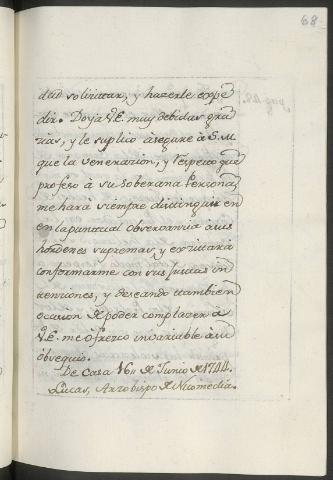 68
dad solicitar, y hazerle expe
dir. Doy à V.E. muy debidas gra
zias, y le suplico àsegure à S.M.
que la venerazion, y respeto que
profeso à su soberana Persona,
me harà siempre distinguir en
en la puntual observancia à sus
hordenes supremas, y
conformarme con sus justas in
tenziones, y deseando tambien
ocasion de poder complazer à
V.E. me òfrezco invariable à su
òbsequio.
De Casa 16 de Junio de 1744.
Lucas, Arzobispo de Nicomedia.